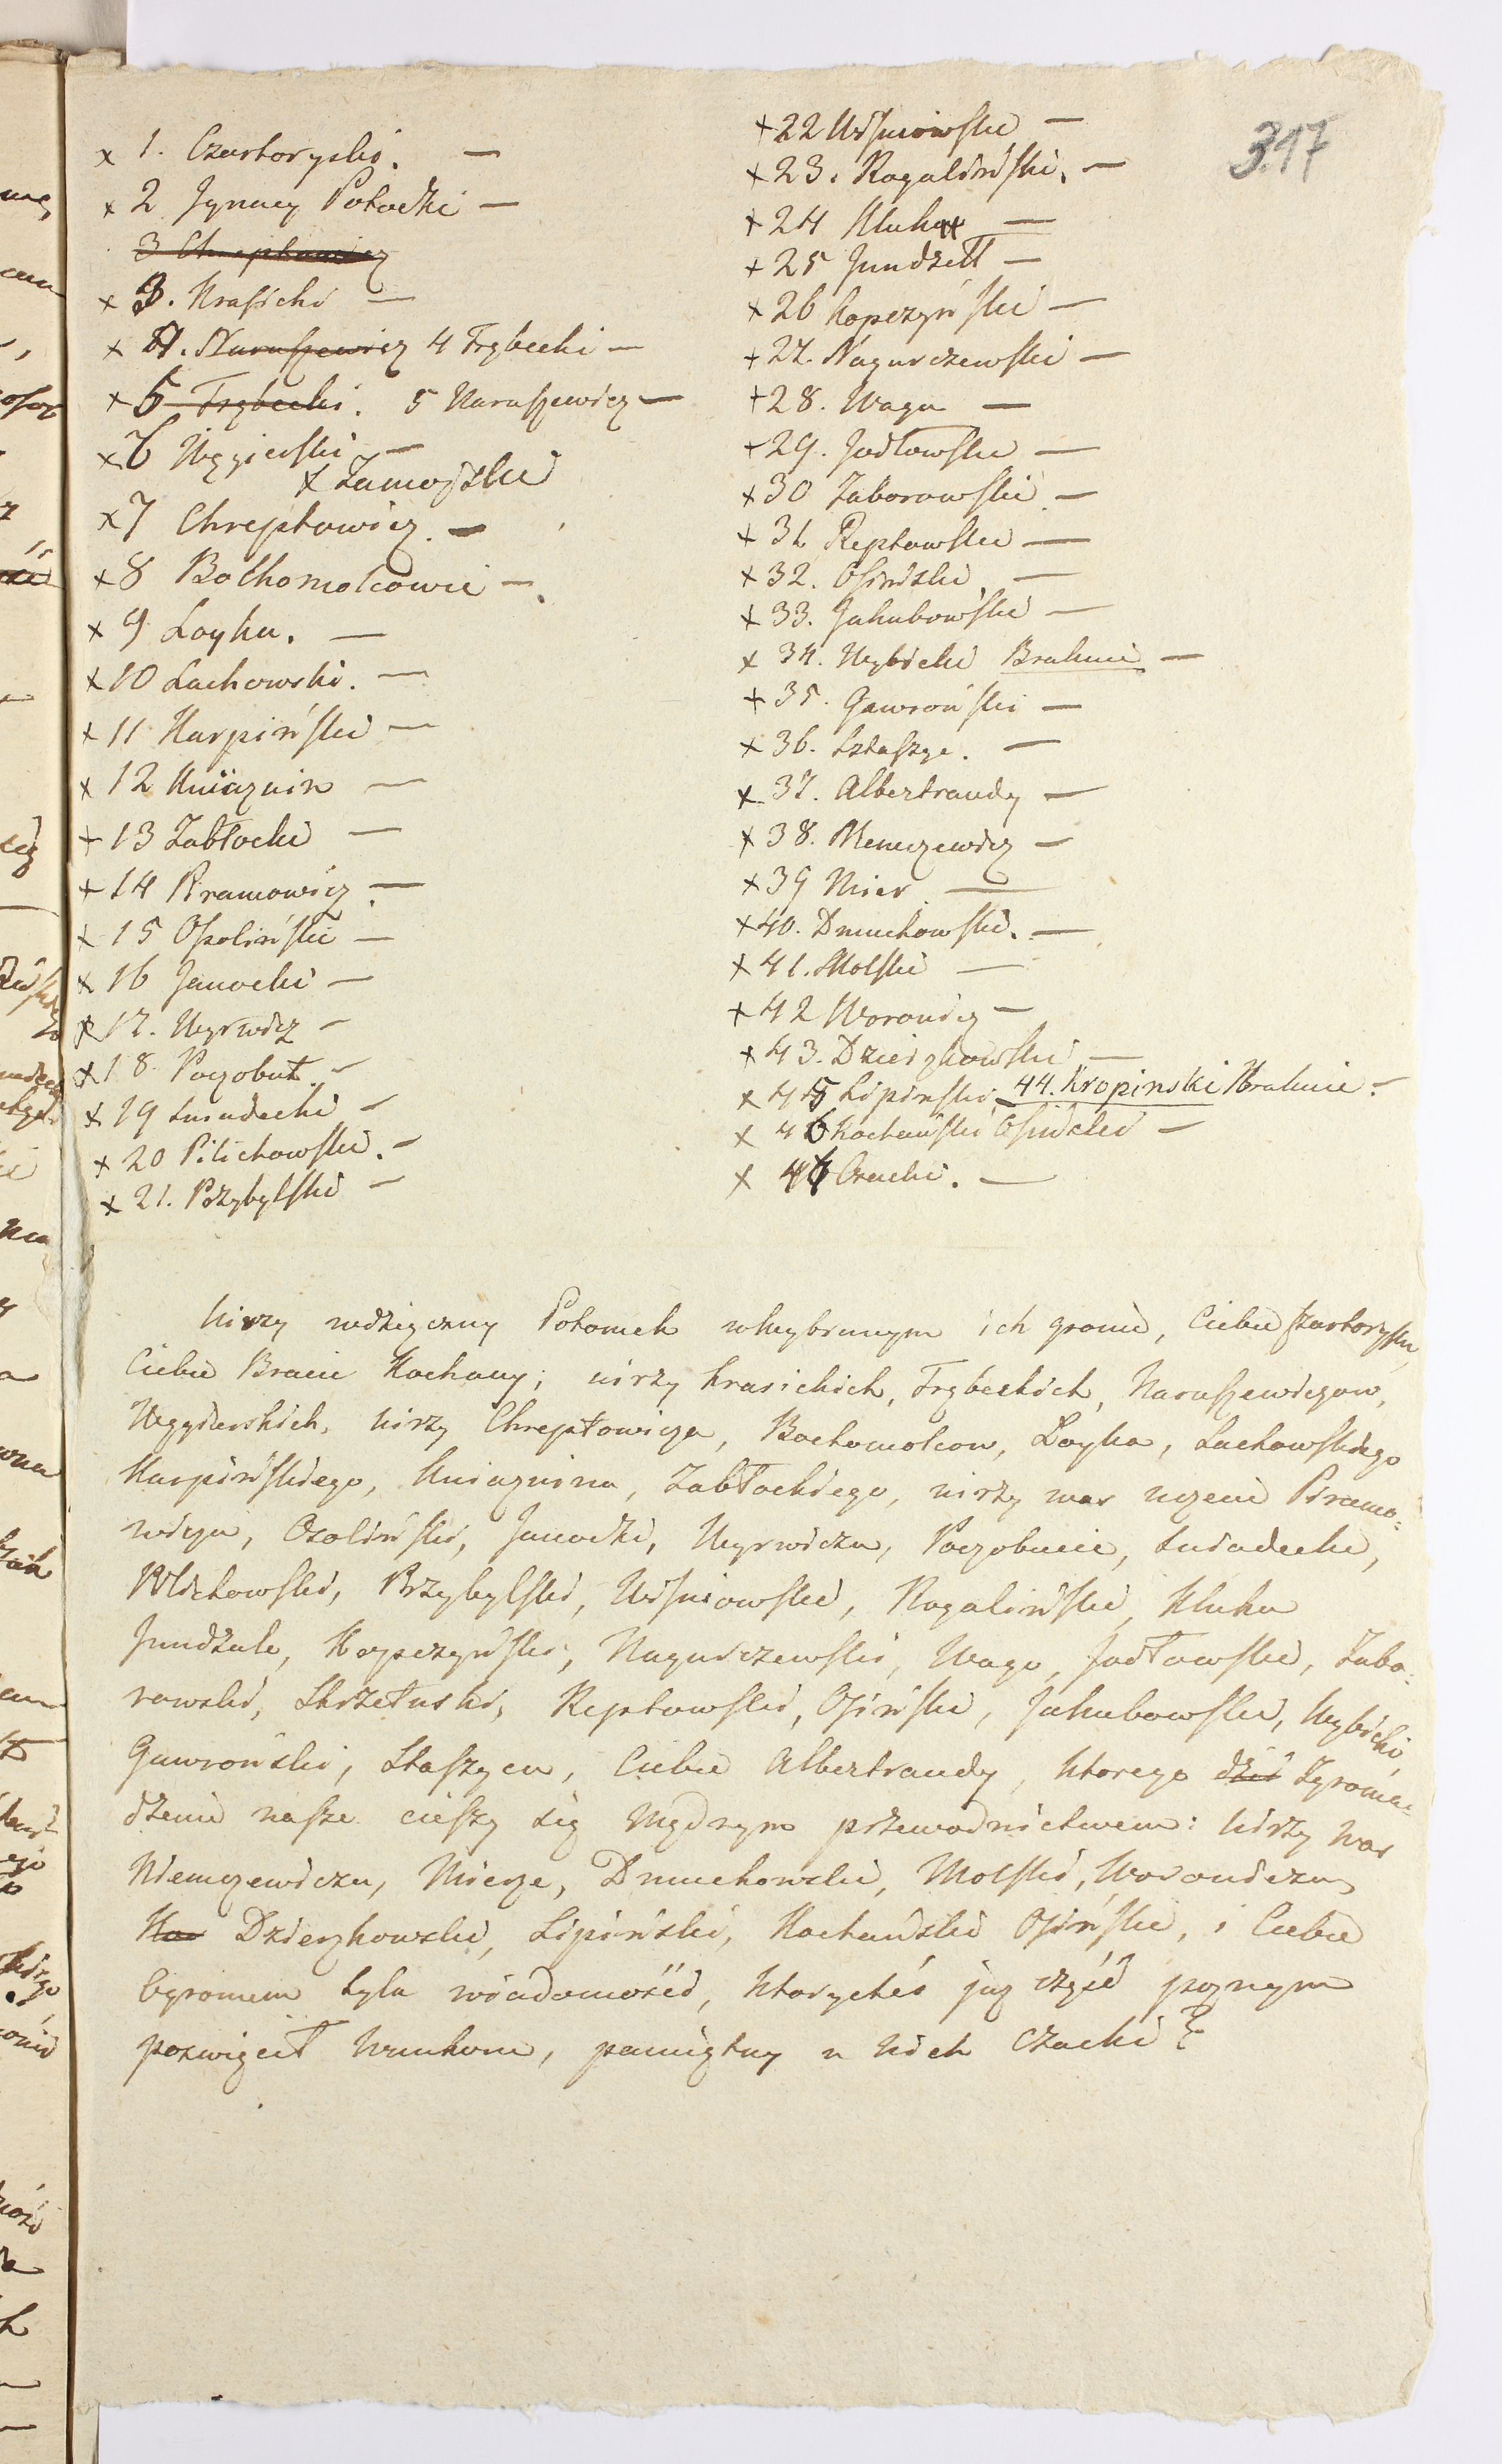 317
x 1. Czartoryski. —
x 2 Jgnacy Potocki —
3 Chreptowicz
x 3. Krasicki —
x 4. Naruszewicz 4 Trębecki —
x 5 Trębecki. 5 Naruszewicz —
x 6 Węgierski —
x Zamojski
x 7 Chreptowicz. —
x 8 Bothomolcowie —.
x 9 Loyka. —
x 10 Lachowski. —
x 11 Karpiński —
x 12 Kniaznin —
x 13 Zabłocki —
x 14 Piramowicz. —
x 15 Osoliński —
x 16 Janocki —
x 17. Wyrwicz —
x 18. Poczobut. —
x 19 Sniadecki —
x 20 Pilichowski. —
x 21. Przybylski —
x 22 Wiśniowski —
x 23. Rogaliński. —
x 24 Kluk —
x 25 Jundziłł —
x 26 Kopczyński —
x 27. Nagurczewski —
x 28. Waga —
x 29. Jodłowski —
x 30 Zaborowski —
x 31 Reptowski —
x 32. Osiński. —
x 33. Jakubowski —
x 34. Wybicki Brakuie —
x 35. Gawroński —
x 36. Sztaszyc. —
x 37. Albertrandy —
x 38. Niemczewicz —
x 39 Mier. —
x 40. Dmuchowski. —
x 41. Molski —
x 42 Woronicz —
x 43. Dzierzkowski —
x 45 Lipiński 44. Kropinski Brakuie —
x 46 Kochański Osiński —
x 47 Czacki. —
Widzy wdzięczny Potomek w wybranym ich gronie, Ciebie Czartoryski,
Ciebie Bracie Kochany; wirzy Krasickich, Trębeckich, Naruszewiczow,
Węgierskich, wirzy Chreptowicza, Bochomolcow, Loyka, Lachowskiego
Karpińskiego, Kniaznina, Zabłockiego, wirzy was uczeni Piramo-
wiczu, Osoliński, Janocki, Wyrwiczu, Poczobucie, Sniadecki,
Pilichowski, Przybylski, Wiśniowski, Rogaliński, Kluku
Jundzile, Kopczyński, Nagurczewski, Wago, Jodłowski, Zabo-
rowski, Skrzetuski, Reptowski, Osiński, Jakubowski, Wybicki,
Gawroński, Staszycu, Ciebie Albertrandy, ktorego dziś Zgroma-
dzenie nasze cieszy się Mądrym przewodnictwem: wirzy was
Niemczewiczu, Mierze, Dmuchowski, Molski, Woroniczu,
Ko Dzierzkowski, Lipiński, Kochański Osiński, i Ciebie
Ogromem tylu wiadomości, ktorychés juz część poznym
poswięcił wnukom, pamiętny u nich Czacki?